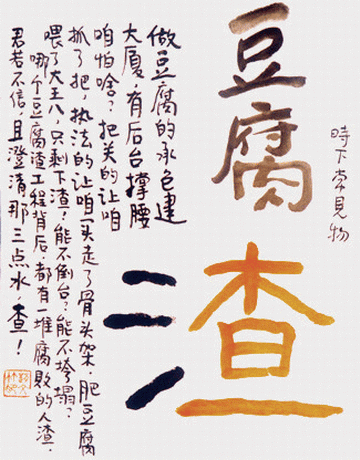 时下常见物
豆腐
查
做豆腐的承包建
大厦，有后台撑腰
咱怕啥？把关的让咱
抓了把，执法的让咱买走了骨头架，肥豆腐
喂了大王八，只剩下渣！能不倒台？能不垮塌？
哪个豆腐渣工程背后，都有一堆腐败的人渣，
君若不信，且澄清那三点水，查！